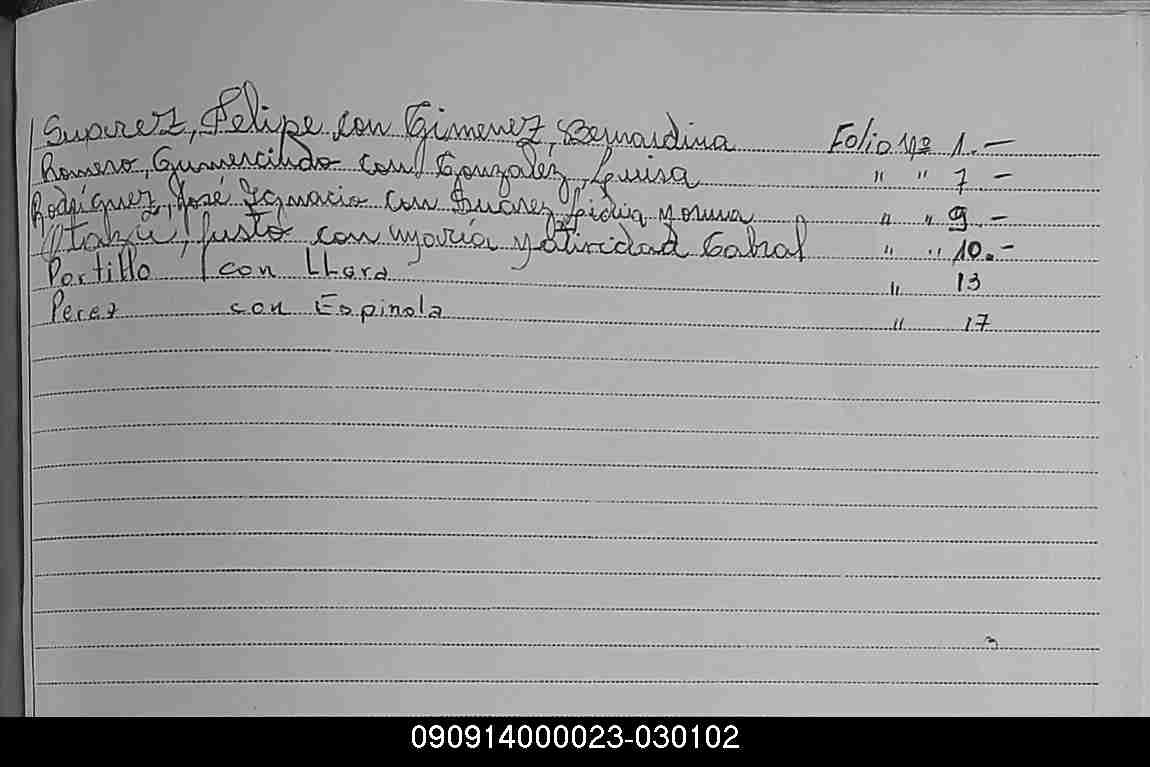 Suarez, Felipe con Gimenez, Bernardina Folio Nº 1.-
Romero, Gumercindo con Gonzalez, Luisa " " 7 -
Rodríguez, José Ignacio con Suarez, Lidia " " 9.-
Otazu, Justo con María Natividad Cabral " " 10.-
Portillo con LLara " 13
Perez con Espinola " 17
090914000023-030102